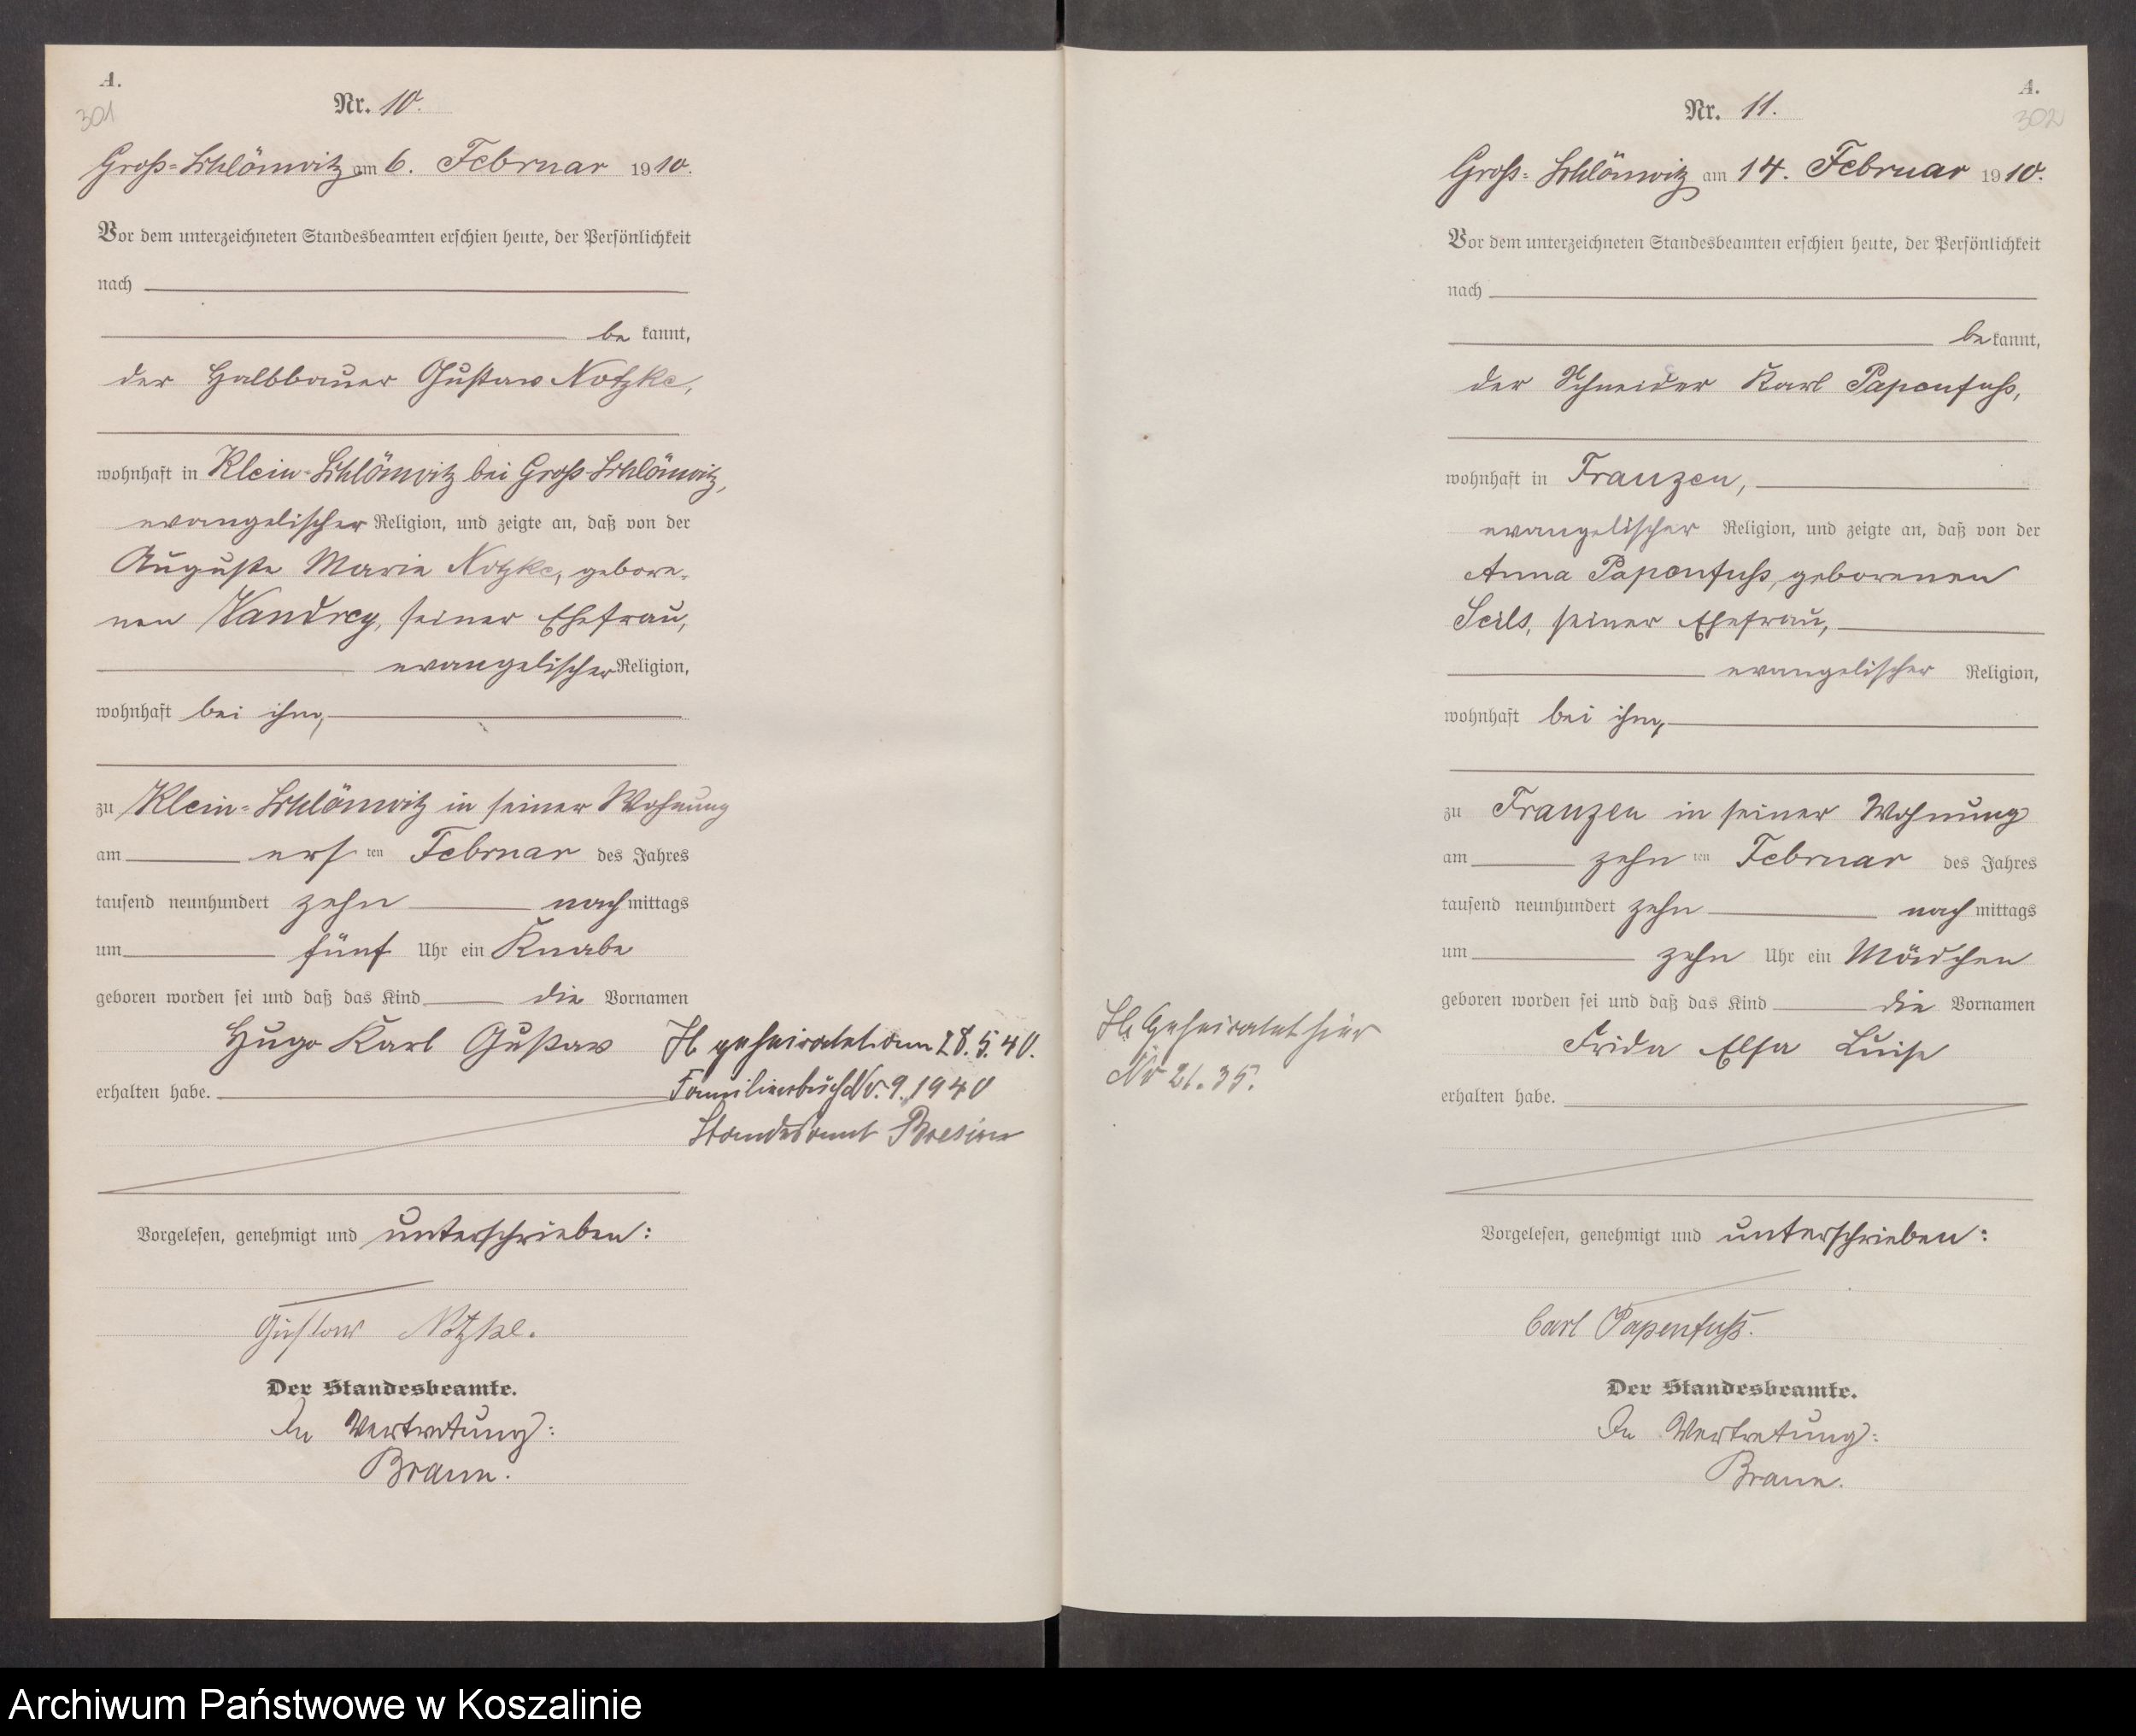 A.
301
Nr. 10.
Groß-Schlönwitz am 6. Februar 1910.
Vor dem unterzeichneten Standesbeamten erschien heute, der Persönlichkeit
nach
be kannt,
der Halbbauer Gustav Notzke,
wohnhaft in Klein-Schlönwitz bei Groß-Schlönwitz,
evangelischer Religion, und zeigte an, daß von der
Auguste Marie Notzke, gebore-
nen Vandrey, seiner Ehefrau,
evangelischer Religion,
wohnhaft bei ihm,
zu Klein-Schlönwitz in seiner Wohnung
am ersten Februar des Jahres
tausend neunhundert zehn nachmittags
um fünf Uhr ein Knabe
geboren worden sei und daß das Kind die Vornamen
Hugo Karl Gustav
erhalten habe.
geheiratet am 28.5.40.
Familienbuch Nr. 9.1940
Standesamt Bresin
Vorgelesen, genehmigt und unterschrieben:
Gustav Notzke.
Der Standesbeamte.
In Vertretung:
Braun.
A.
302
Nr. 11.
Groß-Schlönwitz am 14. Februar 1910.
Vor dem unterzeichneten Standesbeamten erschien heute, der Persönlichkeit
nach
be kannt,
der Schneider Karl Papenfuß,
wohnhaft in Franzen,
evangelischer Religion, und zeigte an, daß von der
Anna Papenfuß, geborenen
Seils, seiner Ehefrau,
evangelischer Religion,
wohnhaft bei ihm,
zu Franzen in seiner Wohnung
am zehnten Februar des Jahres
tausend neunhundert zehn nach mittags
um zehn Uhr ein Mädchen
geboren worden sei und daß das Kind die Vornamen
Frida Elsa Luise
erhalten habe.
Geheiratet hier
Nr 21.35.
Vorgelesen, genehmigt und unterschrieben:
Carl Papenfuß.
Der Standesbeamte.
In Vertretung:
Braun.
Archiwum Państwowe w Koszalinie